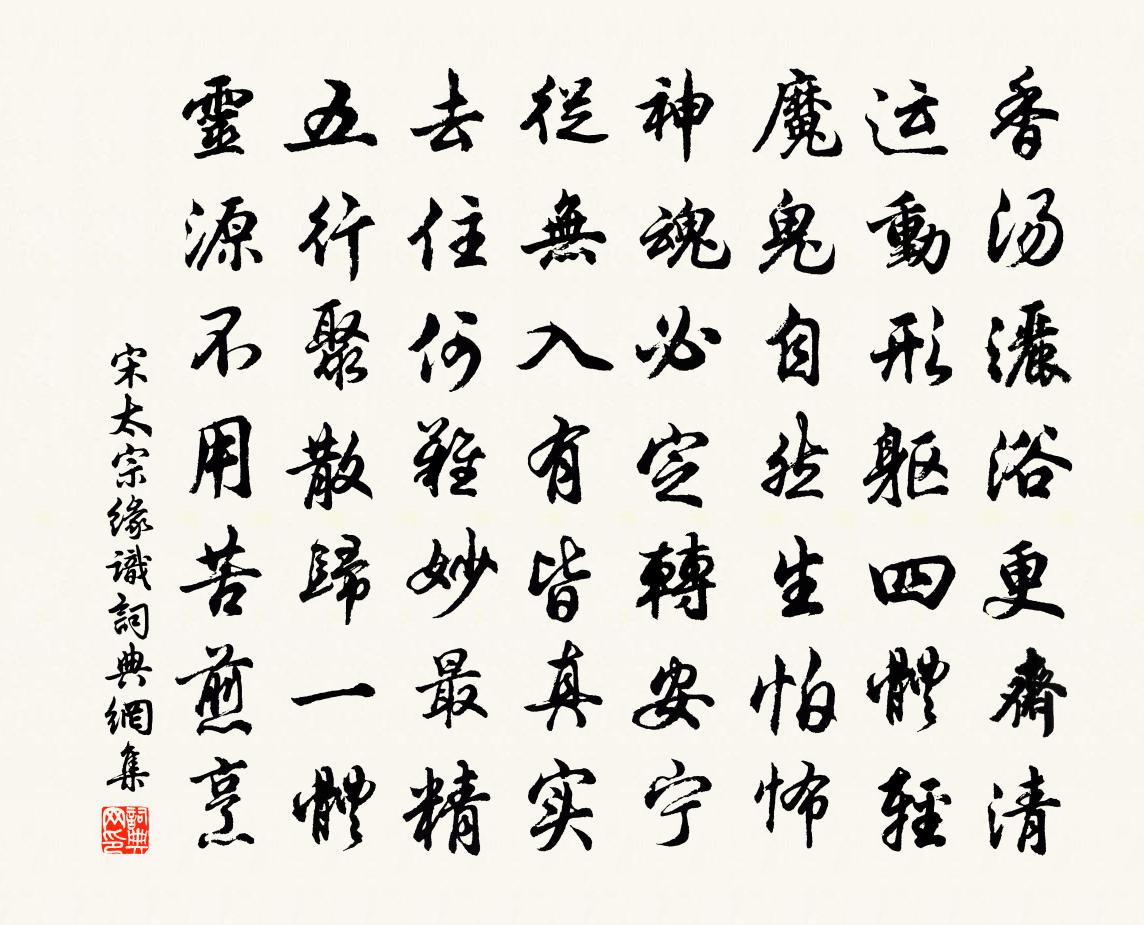 香汤灑浴更齋清
运動形躯四體輕
魔鬼自然生怕怖
神魂必定轉安宁
從無入有皆真实
去住何難妙最精
五行聚散歸一體
靈源不用苦煎烹
宋太宗缘識詞典網集
詞典
网印